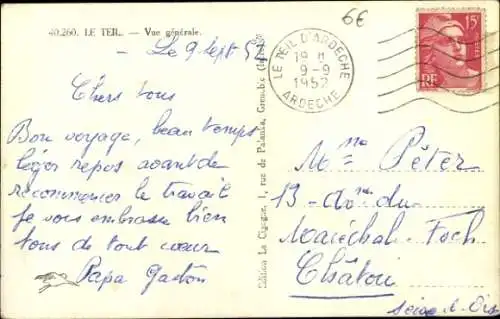 40.260. LE TEIL. — Vue générale.
6€
Le 9 Sept 52
Chers tous
Bon voyage, beau temps
léger repos avant de
recommencer le travail
Je vous embrasse bien
tous de tout cœur
Papa Gaston
Edition La Cigogne, 1, rue de Palanka, Grenoble (Isère)
LE TEIL D'ARDECHE
19 H
9-9
1952
ARDECHE
15F
RF
Mme Péter
13 Avme du
Maréchal Foch
Châtou
Seine-&-Oise